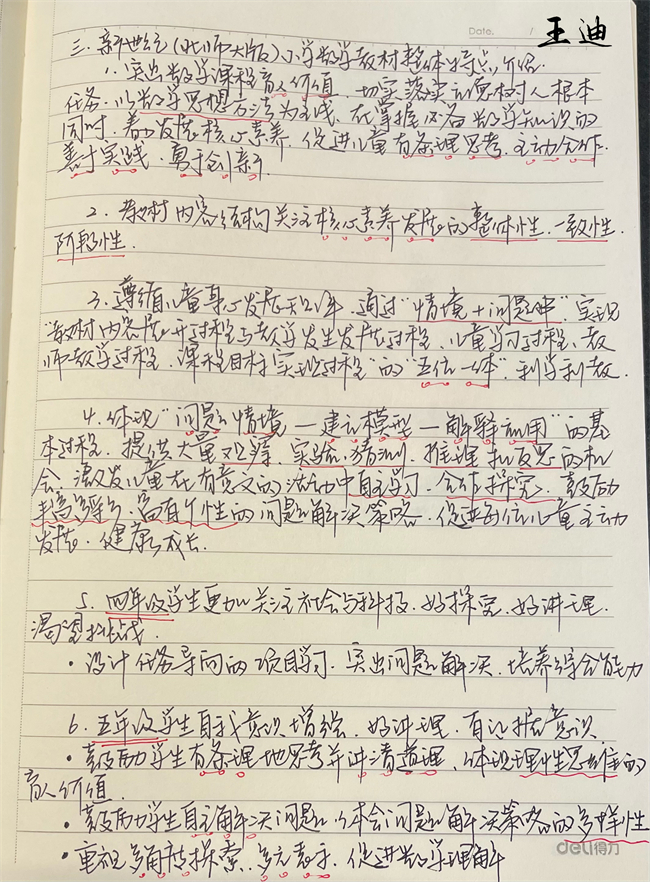 Date.
王迪
三、新世纪(北师大版)小学数学教材整体特点介绍.
1. 突出数学课程育人价值. 切实落实立德树人根本
任务. 以数学思想方法为主线. 在掌握必备数学知识的
同时. 着力发展核心素养. 促进儿童有条理思考. 主动合作.
善于实践. 勇于创新.
2. 教材内容结构关注核心素养发展的整体性. 一致性.
阶段性.
3. 遵循儿童身心发展规律. 通过"情境+问题串"实现
"教材内容展开过程与数学发生发展过程、儿童学习过程、教
师教学过程、课程目标实现过程"的"五位一体". 利学利教.
4. 体现"问题情境—建立模型—解释应用"的基
本过程. 提供大量观察、实验、猜测、推理和反思的机
会. 激发儿童在有意义的活动中自主学习、合作探究. 鼓励
丰富多彩、富有个性的问题解决策略. 促进每位儿童主动
发展、健康成长.
5. 四年级学生更加关注社会与科技. 好探究. 好讲理.
渴望挑战.
· 设计任务导向的项目学习. 突出问题解决. 培养综合能力
6. 五年级学生自我意识增强. 好讲理. 有证据意识.
· 鼓励学生有条理地思考并讲清道理、体现理性思维的
育人价值.
· 鼓励学生自主解决问题. 体会问题解决策略的多样性
· 重视多角度探索、多元表示. 促进数学理解
deli得力